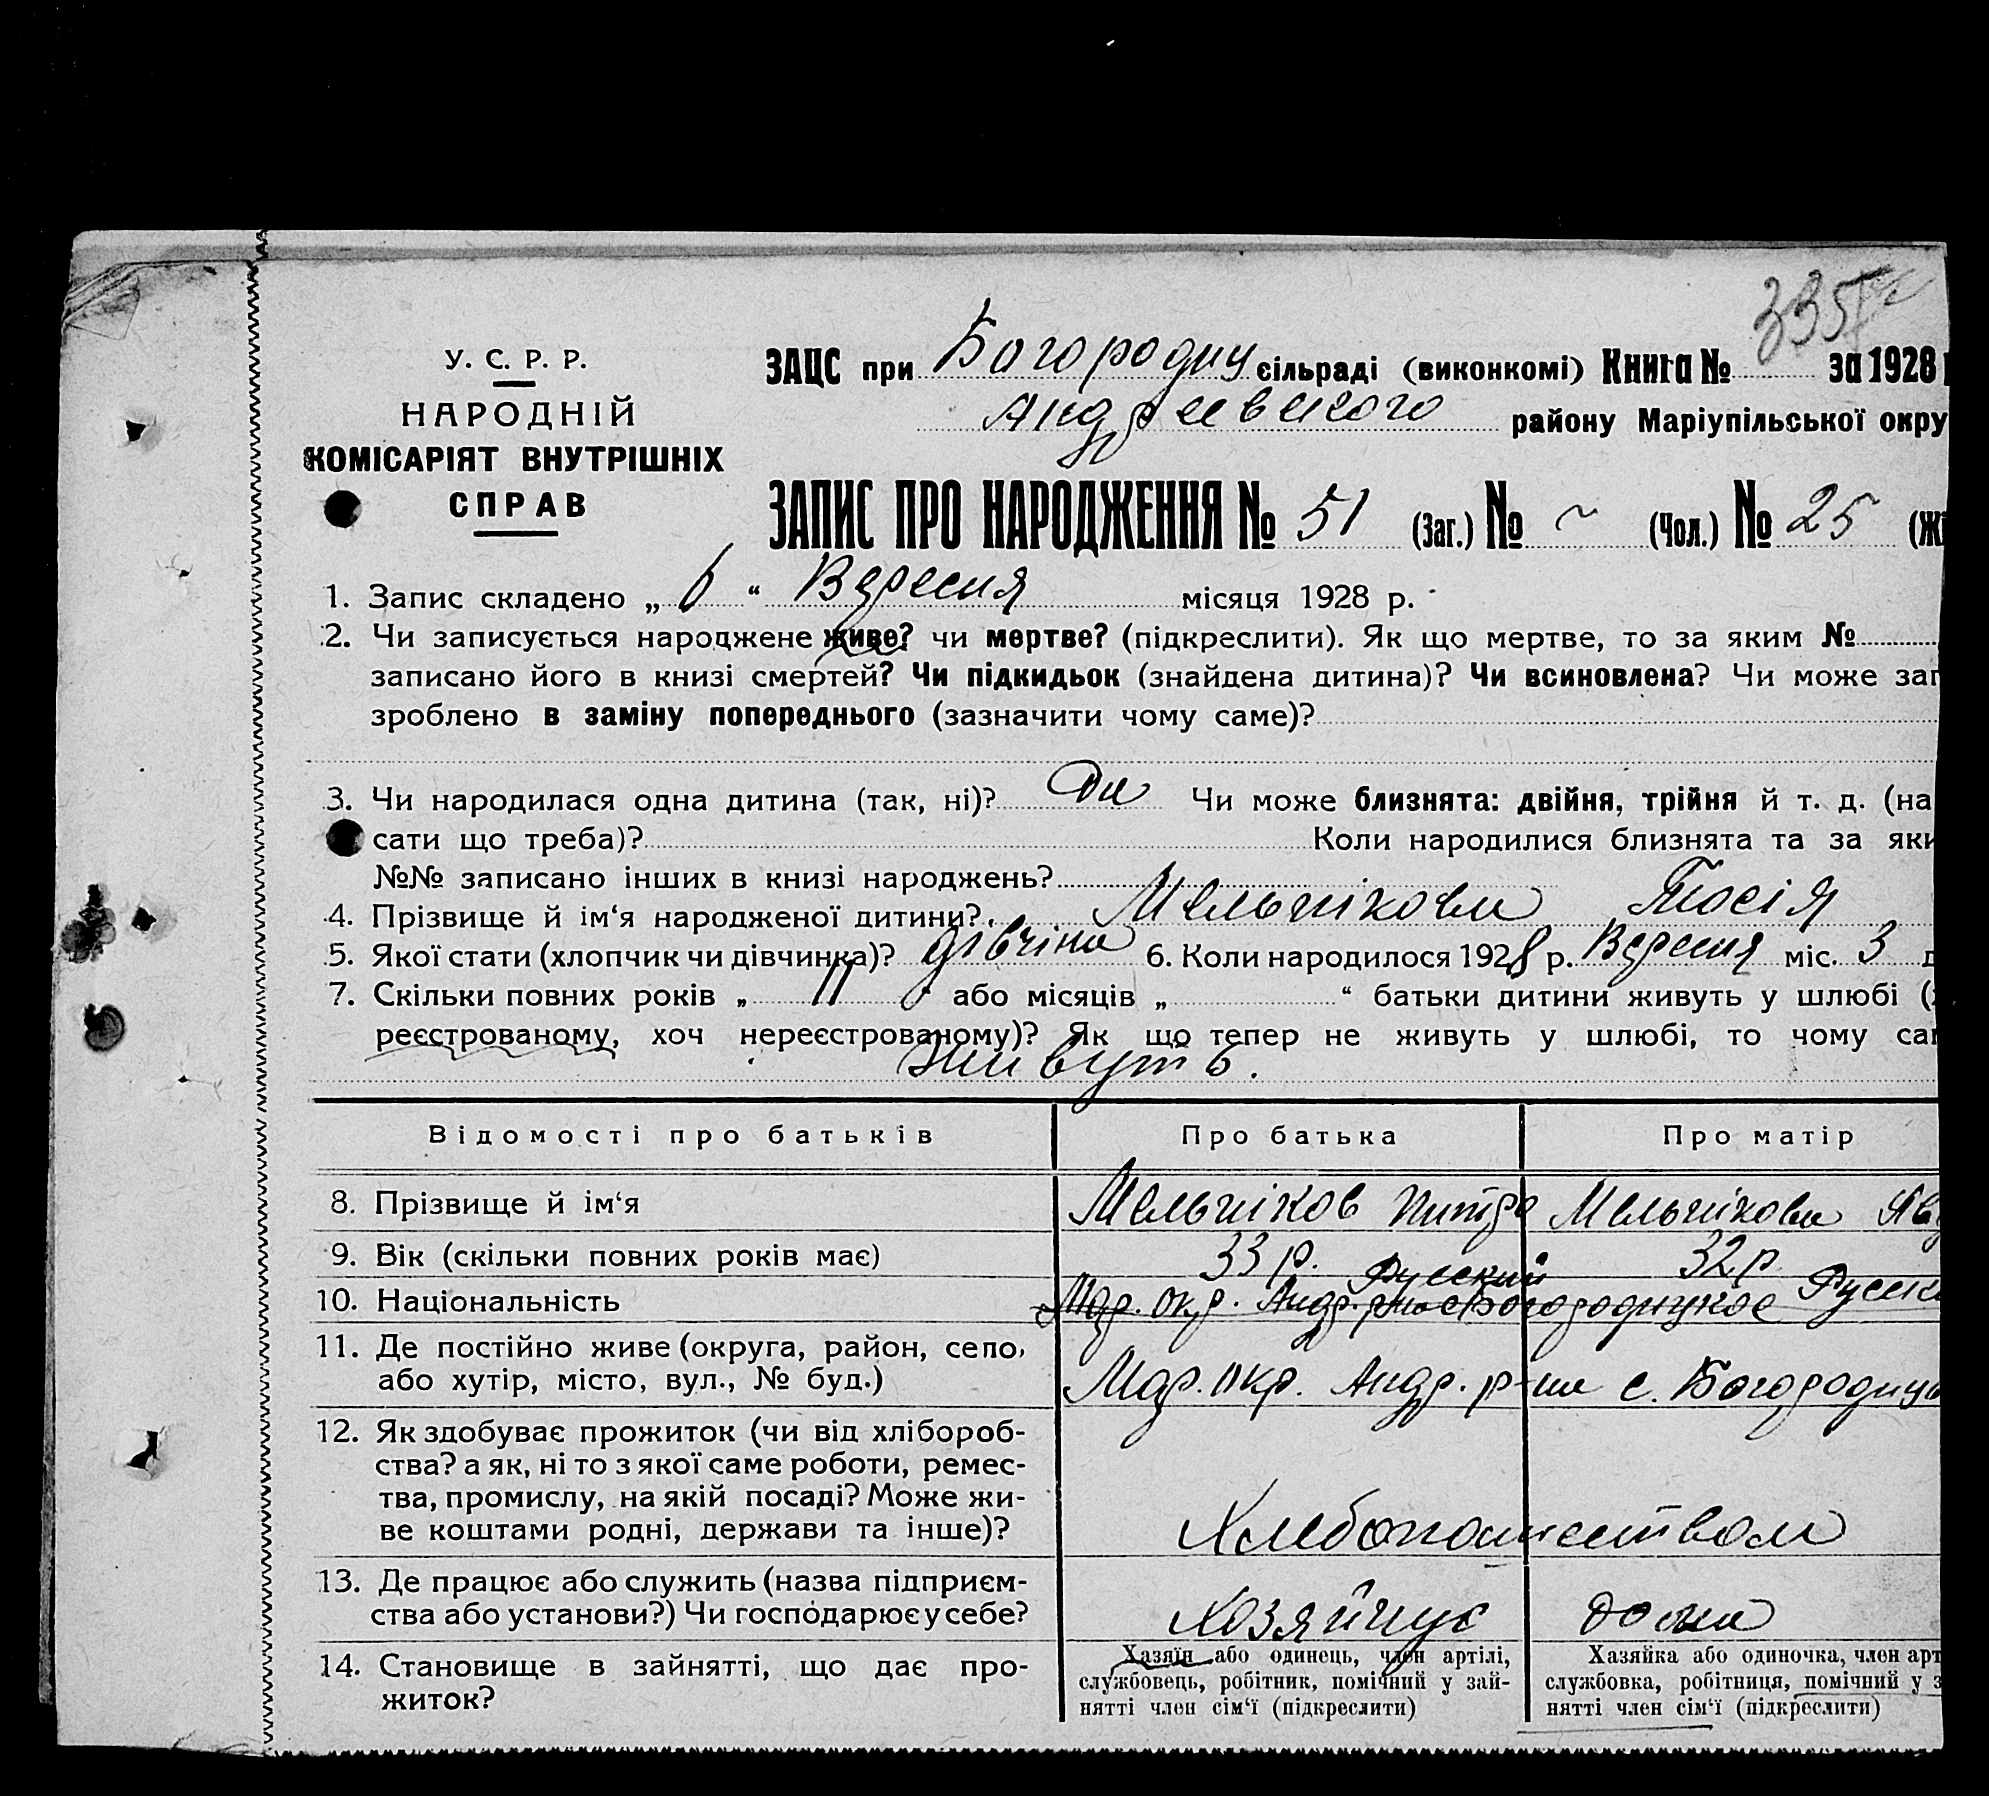 335
У. С. Р. Р.
НАРОДНІЙ
КОМІСАРІЯТ ВНУТРІШНІХ
СПРАВ
ЗАЦС при Богородиц сільраді (виконкомі) Книга № за 1928
Андреевского району Маріупільської окру
ЗАПИС ПРО НАРОДЖЕННЯ № 51 (Заг.) № ~ (Чол.) № 25 (Ж
1. Запис складено „ 6 “ Вересня місяця 1928 р.
2. Чи записується народжене живе? чи мертве? (підкреслити). Як що мертве, то за яким №
записано його в книзі смертей? Чи підкидьок (знайдена дитина)? Чи всиновлена? Чи може зап
зроблено в заміну попереднього (зазначити чому саме)?
3. Чи народилася одна дитина (так, ні)? Чи може близнята: двійня, трійня й т. д. (на
сати що треба)? Коли народилися близнята та за яки
№№ записано інших в книзі народжень?
4. Прізвище й ім‘я народженої дитини? Мельнікова Тосія
5. Якої стати (хлопчик чи дівчинка)? дівчіна 6. Коли народилося 1928 р. Вересня міс. 3 д
7. Скільки повних років „ 11 “ або місяців „ “ батьки дитини живуть у шлюбі (
реєстрованому, хоч нереєстрованому)? Як що тепер не живуть у шлюбі, то чому сам
живуть.
Відомості про батьків Про батька Про матір
8. Прізвище й ім‘я Мельніков Мельнікова Яв
9. Вік (скільки повних років має) 33 р. 32 р
10. Національність Мар. окр. Андр. Богородицкое Русский Русска
11. Де постійно живе (округа, район, село,
або хутір, місто, вул., № буд.) Мар. окр. Андр. р-на с. Богородицк
12. Як здобуває прожиток (чи від хлібороб-
ства? а як, ні то з якої саме роботи, ремес-
тва, промислу, на якій посаді? Може жи-
ве коштами родні, держави та інше)? Хлебопашеством
13. Де працює або служить (назва підприєм-
ства або установи?) Чи господарює у себе? Хозяйнує дома
14. Становище в зайнятті, що дає про-
житок?
Хазяїн або одинець, член артілі,
службовець, робітник, помічний у зай-
нятті член сім‘ї (підкреслити)
Хазяйка або одиночка, член арт
службовка, робітниця, помічний у з
нятті член сім‘ї (підкреслити)